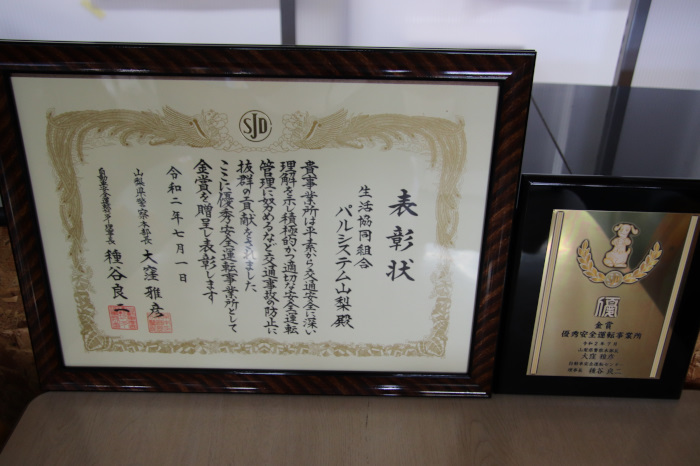 SJD
表彰状
生活協同組合
パルシステム山梨殿
貴事業所は平素から交通安全に深い
理解を示し積極的かつ適切な安全運転
管理に努めるなど交通事故の防止に
抜群の貢献をされました
ここに優秀安全運転事業所として
金賞を贈呈し表彰します
令和二年七月一日
山梨県警察本部長 大窪雅彦
自動車安全運転センター理事長 種谷良二
優
金賞
優秀安全運転事業所
令和2年7月
山梨県警察本部長
大窪雅彦
自動車安全運転センター
理事長 種谷良二